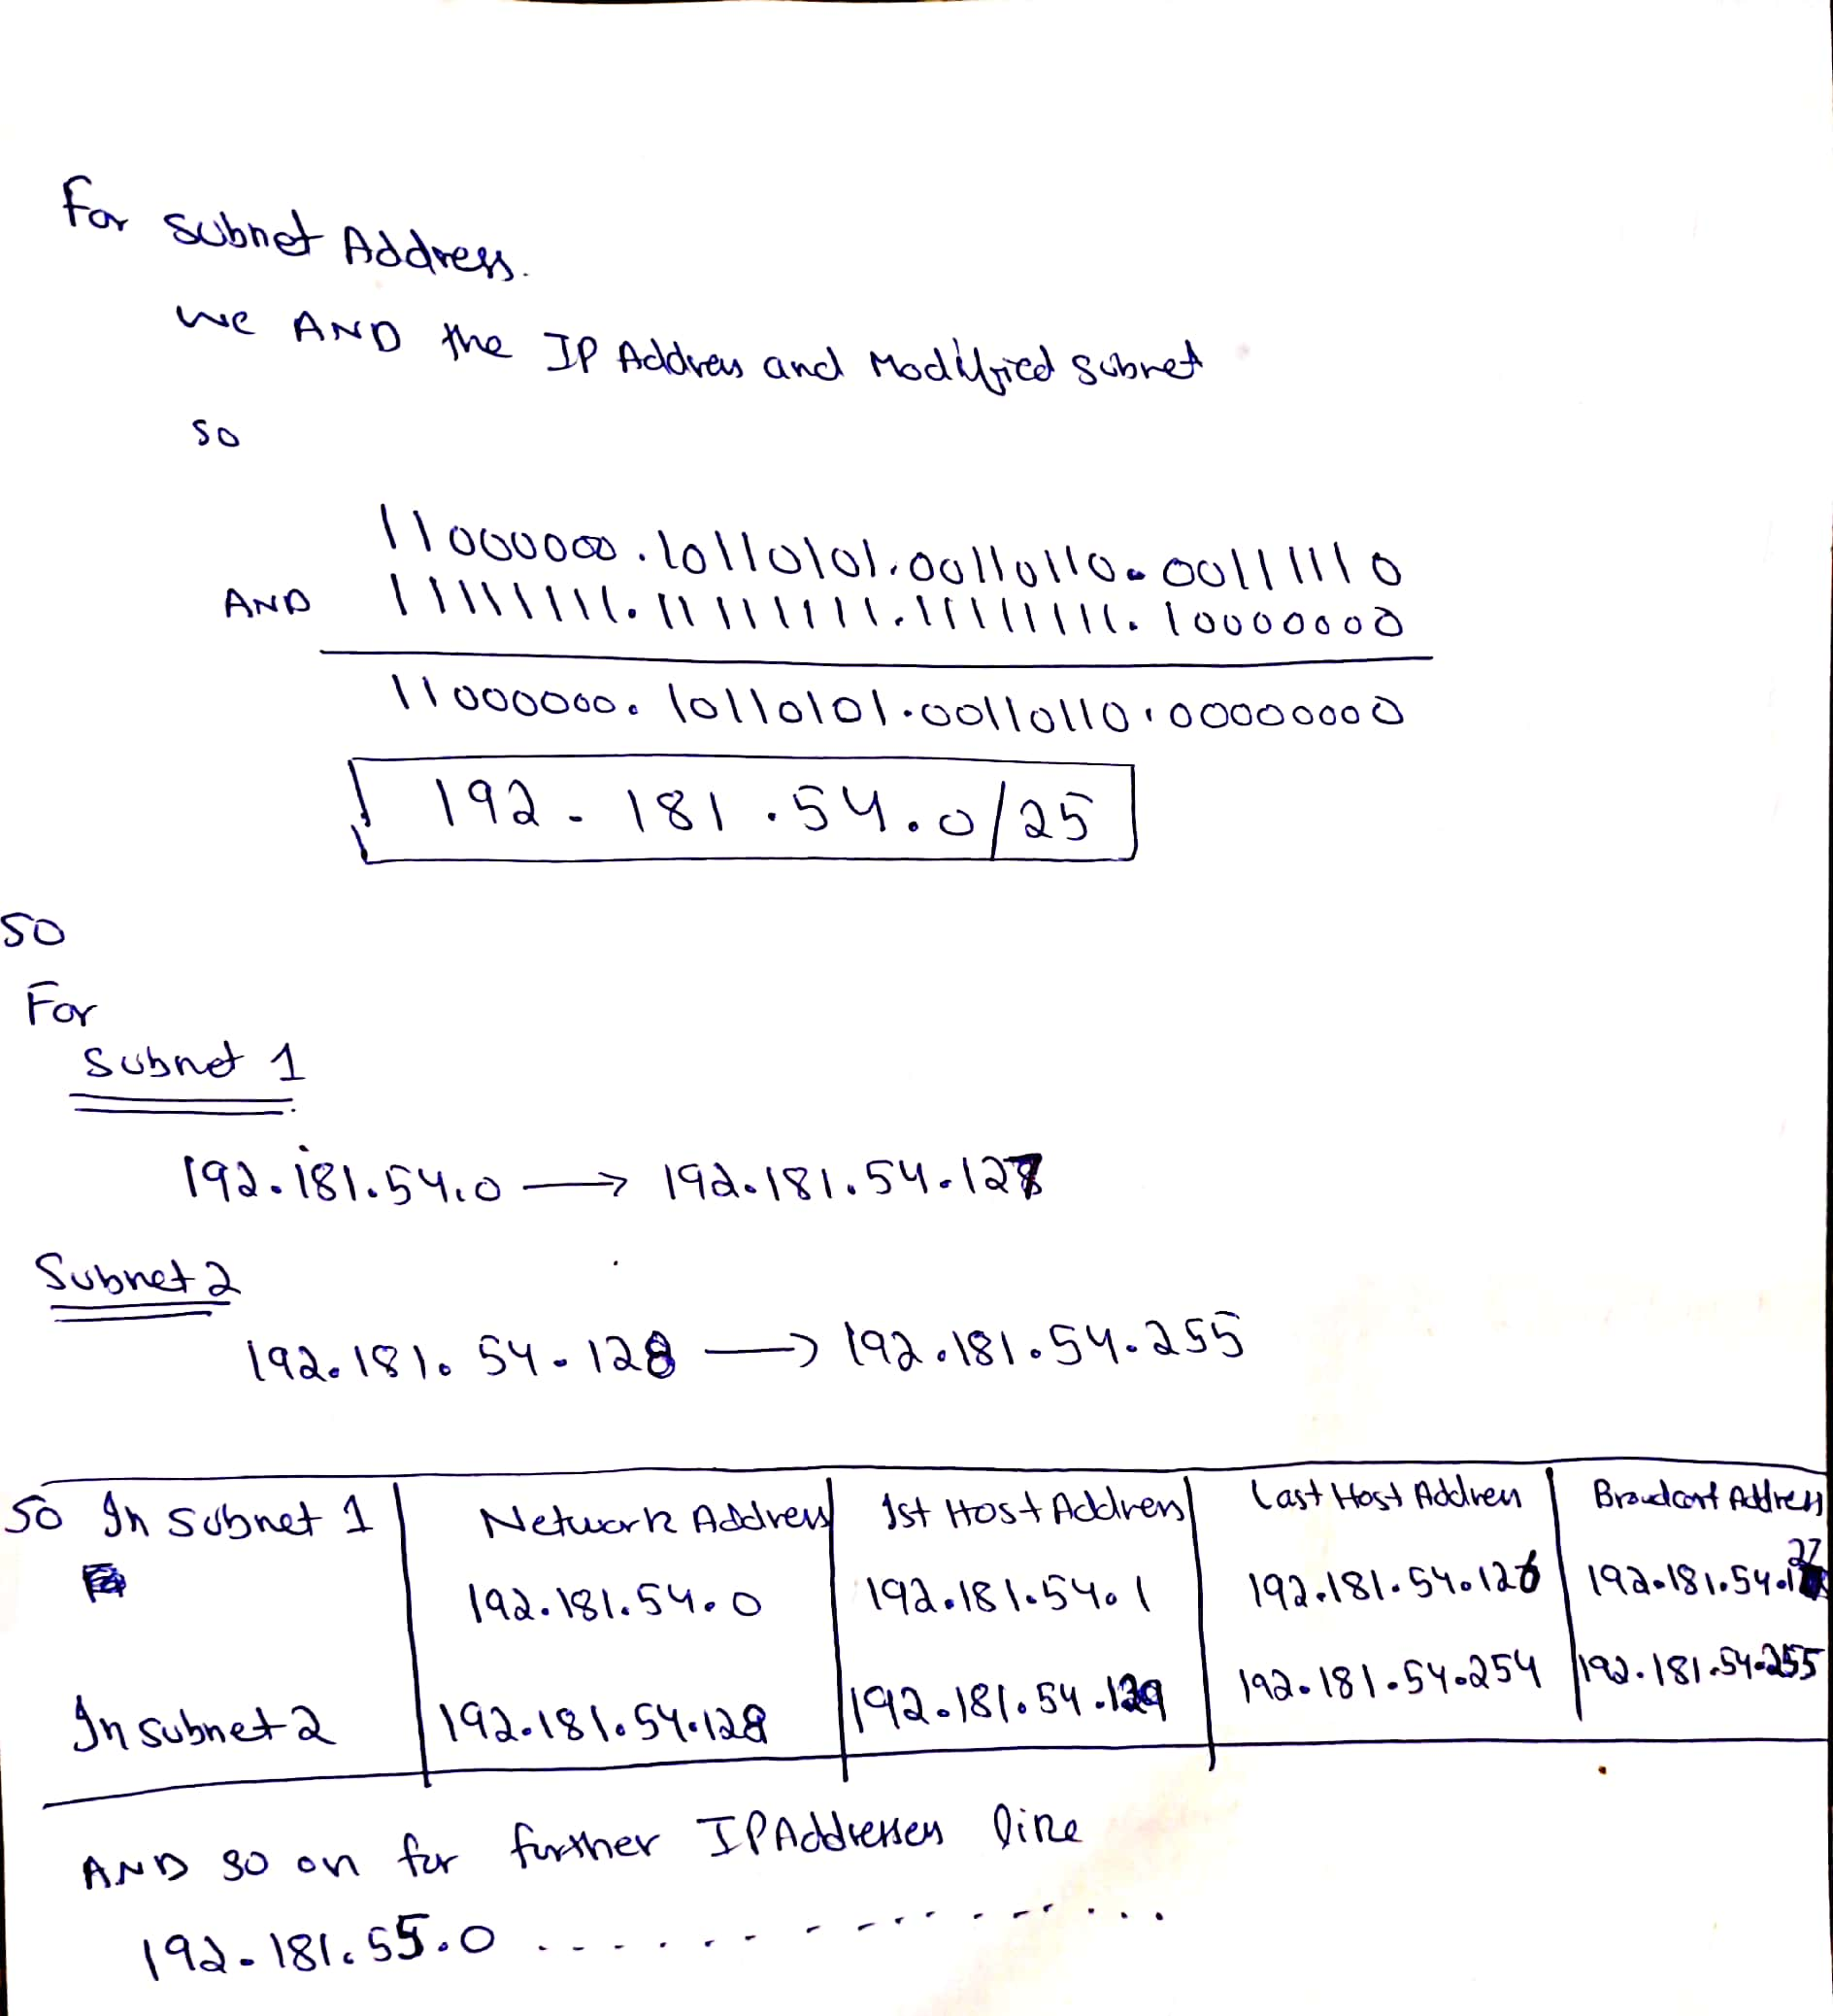 For subnet Address.
we AND the IP Address and Modified subnet
so
11000000.10110101.00110110.00111110
AND 11111111.11111111.11111111.10000000
11000000.10110101.00110110.00000000
192.181.54.0/25
SO
For
Subnet 1
192.181.54.0 → 192.181.54.127
Subnet 2
192.181.54.128 → 192.181.54.255
So In Subnet 1 Network Address 1st Host Address Last Host Address Broadcast Address
192.181.54.0 192.181.54.1 192.181.54.126 192.181.54.127
In subnet 2 192.181.54.128 192.181.54.129 192.181.54.254 192.181.54.255
AND so on for further IP Addresses like
192.181.55.0 ...............